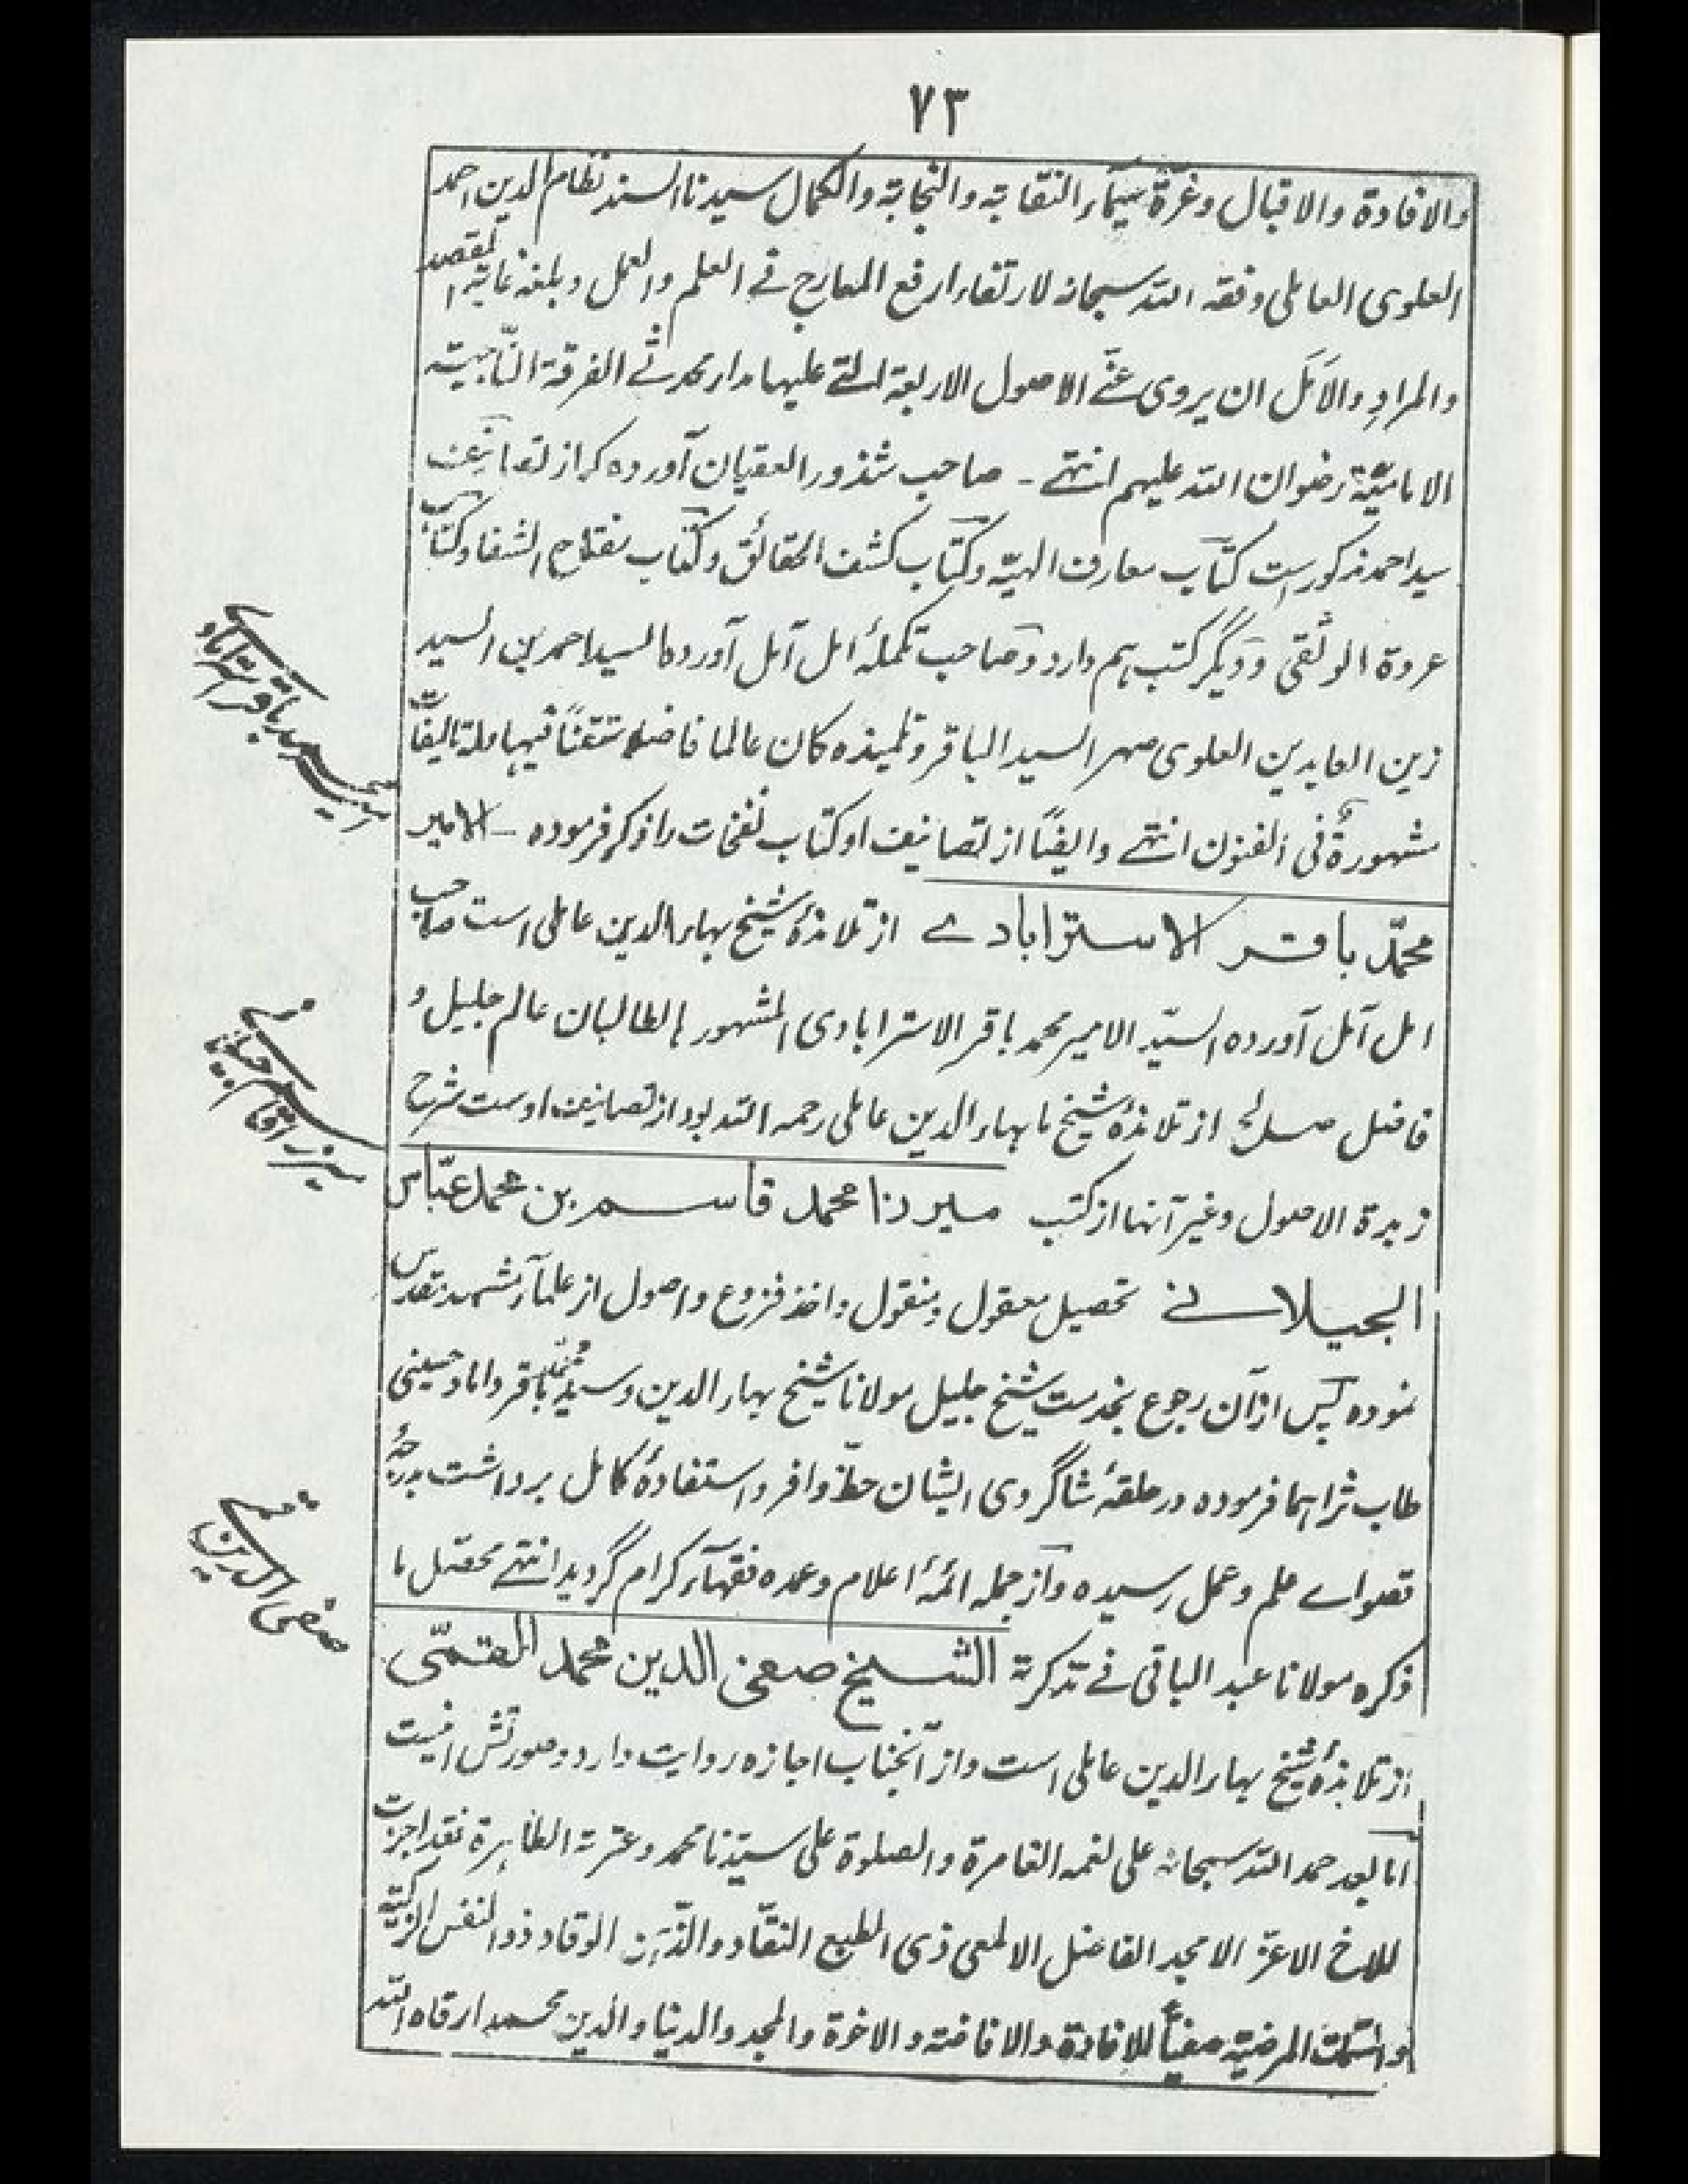 ٧٣
والافادة والاقبال وغرّة سیمآء النقابة والنجابة والکمال سیدنا السند نظام الدین احمد
العلوی العاملی وفقه الله سبحانه لارتقاء ارفع المعارج فے العلم والعمل وبلغه غایة المقصد
والمرادِ والاَمَل ان یروی عنّے الاصول الاربعة التے علیها مدار محدثے الفرقة النّاجیة
الامامیّة رضوان الله علیهم انتهے - صاحب شذور العقیان آورده که از تصانیف
سید احمد مذکورست کتاب معارف الهیّه وکتاب کشف الحقائق وکتاب مفتاح الشفا وکتاب
عروة الوثقی ودیگر کتب هم دارد وصاحب تکملهٔ امل آمل آورده السید احمد بن السید
زین العابدین العلوی صهر السید الباقر وتلمیذه کان عالما فاضلا متقناً فیها وله تالیفات
مشهورةٌ فی الفنون انتهے وایضًا از تصانیف او کتاب نفخات را ذکر فرموده - الامیر
محمّد باقر الاسترابادے از تلامذهٔ شیخ بهاء الدین عاملی است صاحب
امل آمل آورده السیّد الامیر محمد باقر الاسترابادی المشهور بالطالبان عالم جلیل و
فاضل صالح از تلامذهٔ شیخ ما بهاء الدین عاملی رحمه الله بود از تصانیف اوست شرح
زبدة الاصول وغیر آنها از کتب میرزا محمد قاسم بن محمد عبّاس
الجیلانے تحصیل معقول ومنقول واخذ فروع واصول از علمآء مشهد مقدس
نموده پس ازان رجوع بخدمت شیخ جلیل مولانا شیخ بهاء الدین وسید محمّد باقر داماد حسینی
طاب ثراهما فرموده در حلقهٔ شاگردی ایشان حظّ وافر واستفادهٔ کامل برداشت بدرجهٔ
قصواے علم وعمل رسیده واز جمله ائمهٔ اعلام وعمده فقهآء کرام گردید انتهے محصّل ما
ذکره مولانا عبد الباقی فے تذکرته الشیخ صفی الدین محمد القمّی
از تلامذهٔ شیخ بهاء الدین عاملی است واز آنجناب اجازه روایت دارد وصورتش اینست
اما بعد حمد الله سبحانه علی نعمه الغامرة والصلوة علی سیّدنا محمد وعترته الطاهرة فقد اجزت
للاخ الاعزّ الامجد الفاضل الالمعی ذی الطبع النقّاد والذّهن الوقاد ذو النفس الزکیّة
والسمات المرضیّة صفیاً للافادة والافاضة والاخوة والمجد والدنیا والدین محمد ارقاه الله
امیر محمد باقر استرابادے
میرزا قاسم جیلانے
صفی الدین قمے